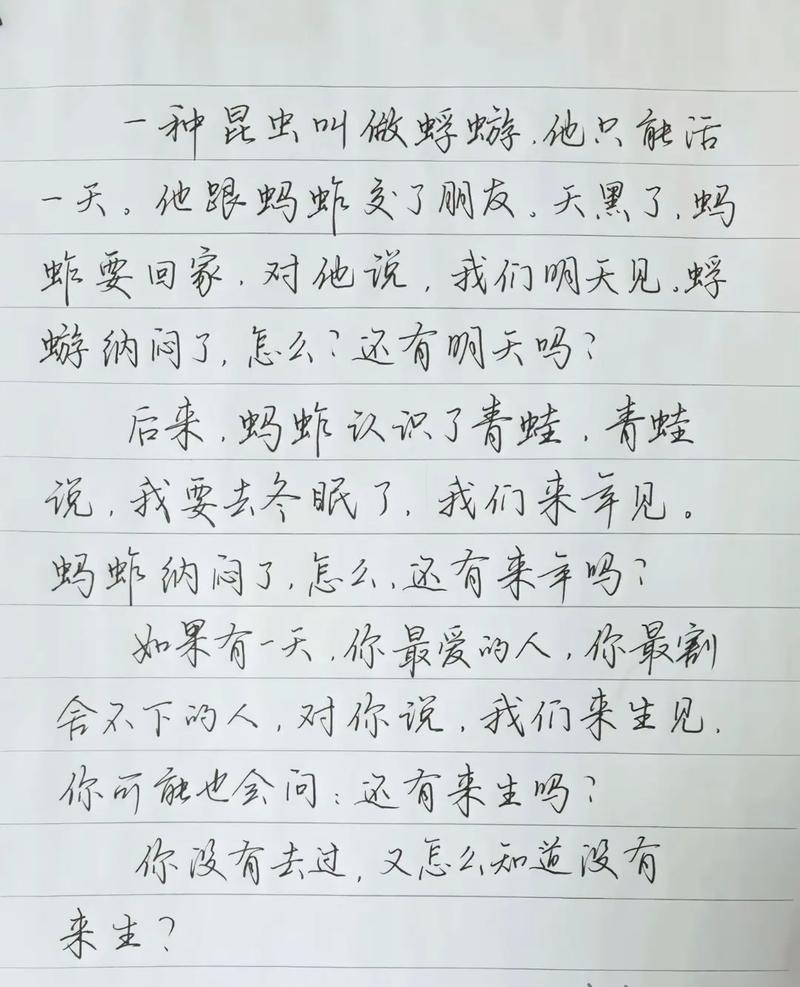 一种昆虫叫做蜉蝣,他只能活
一天。他跟蚂蚱交了朋友。天黑了,蚂
蚱要回家,对他说,我们明天见。蜉
蝣纳闷了,怎么?还有明天吗?
后来,蚂蚱认识了青蛙,青蛙
说,我要去冬眠了,我们来年见。
蚂蚱纳闷了,怎么,还有来年吗?
如果有一天,你最爱的人,你最割
舍不下的人,对你说,我们来生见,
你可能也会问:还有来生吗?
你没有去过,又怎么知道没有
来生?